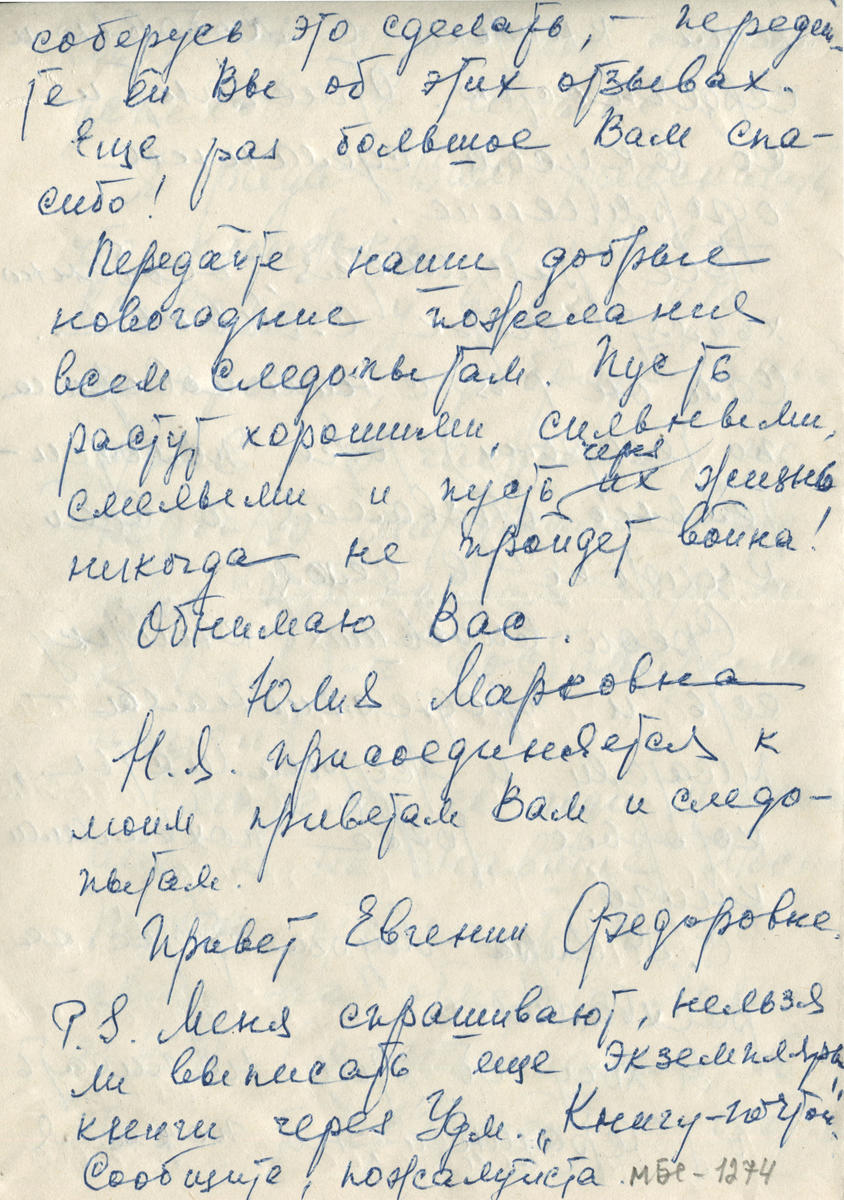 соберусь это сделать, – передай-
те ей Вы об этих отзывах.
Еще раз большое Вам спа-
сибо!
Передайте наши добрые
новогодние пожелания
всем следопытам. Пусть
растут хорошими, сильными,
через
смелыми и пусть их жизнь
никогда не пройдет война!
Обнимаю Вас.
Юлия Марковна
Н.Я. присоединяется к
моим приветам Вам и следо-
пытам.
Привет Евгении Федоровне.
P.S. Меня спрашивают, нельзя
ли выписать еще экземпляры
книги через Удм. „Книгу-почтой".
Сообщите, пожалуйста.
МБС-1274